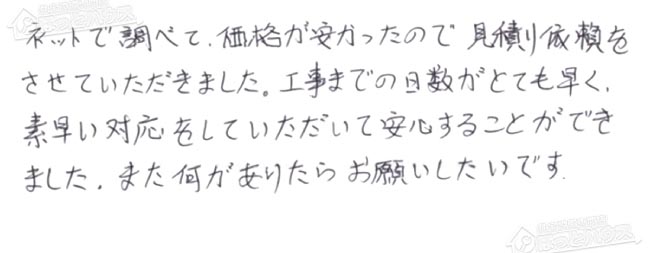 ネットで調べて、価格が安かったので見積り依頼を
させていただきました。工事までの日数がとても早く、
素早い対応をしていただいて安心することができ
ました。また何がありたらお願いしたいです。